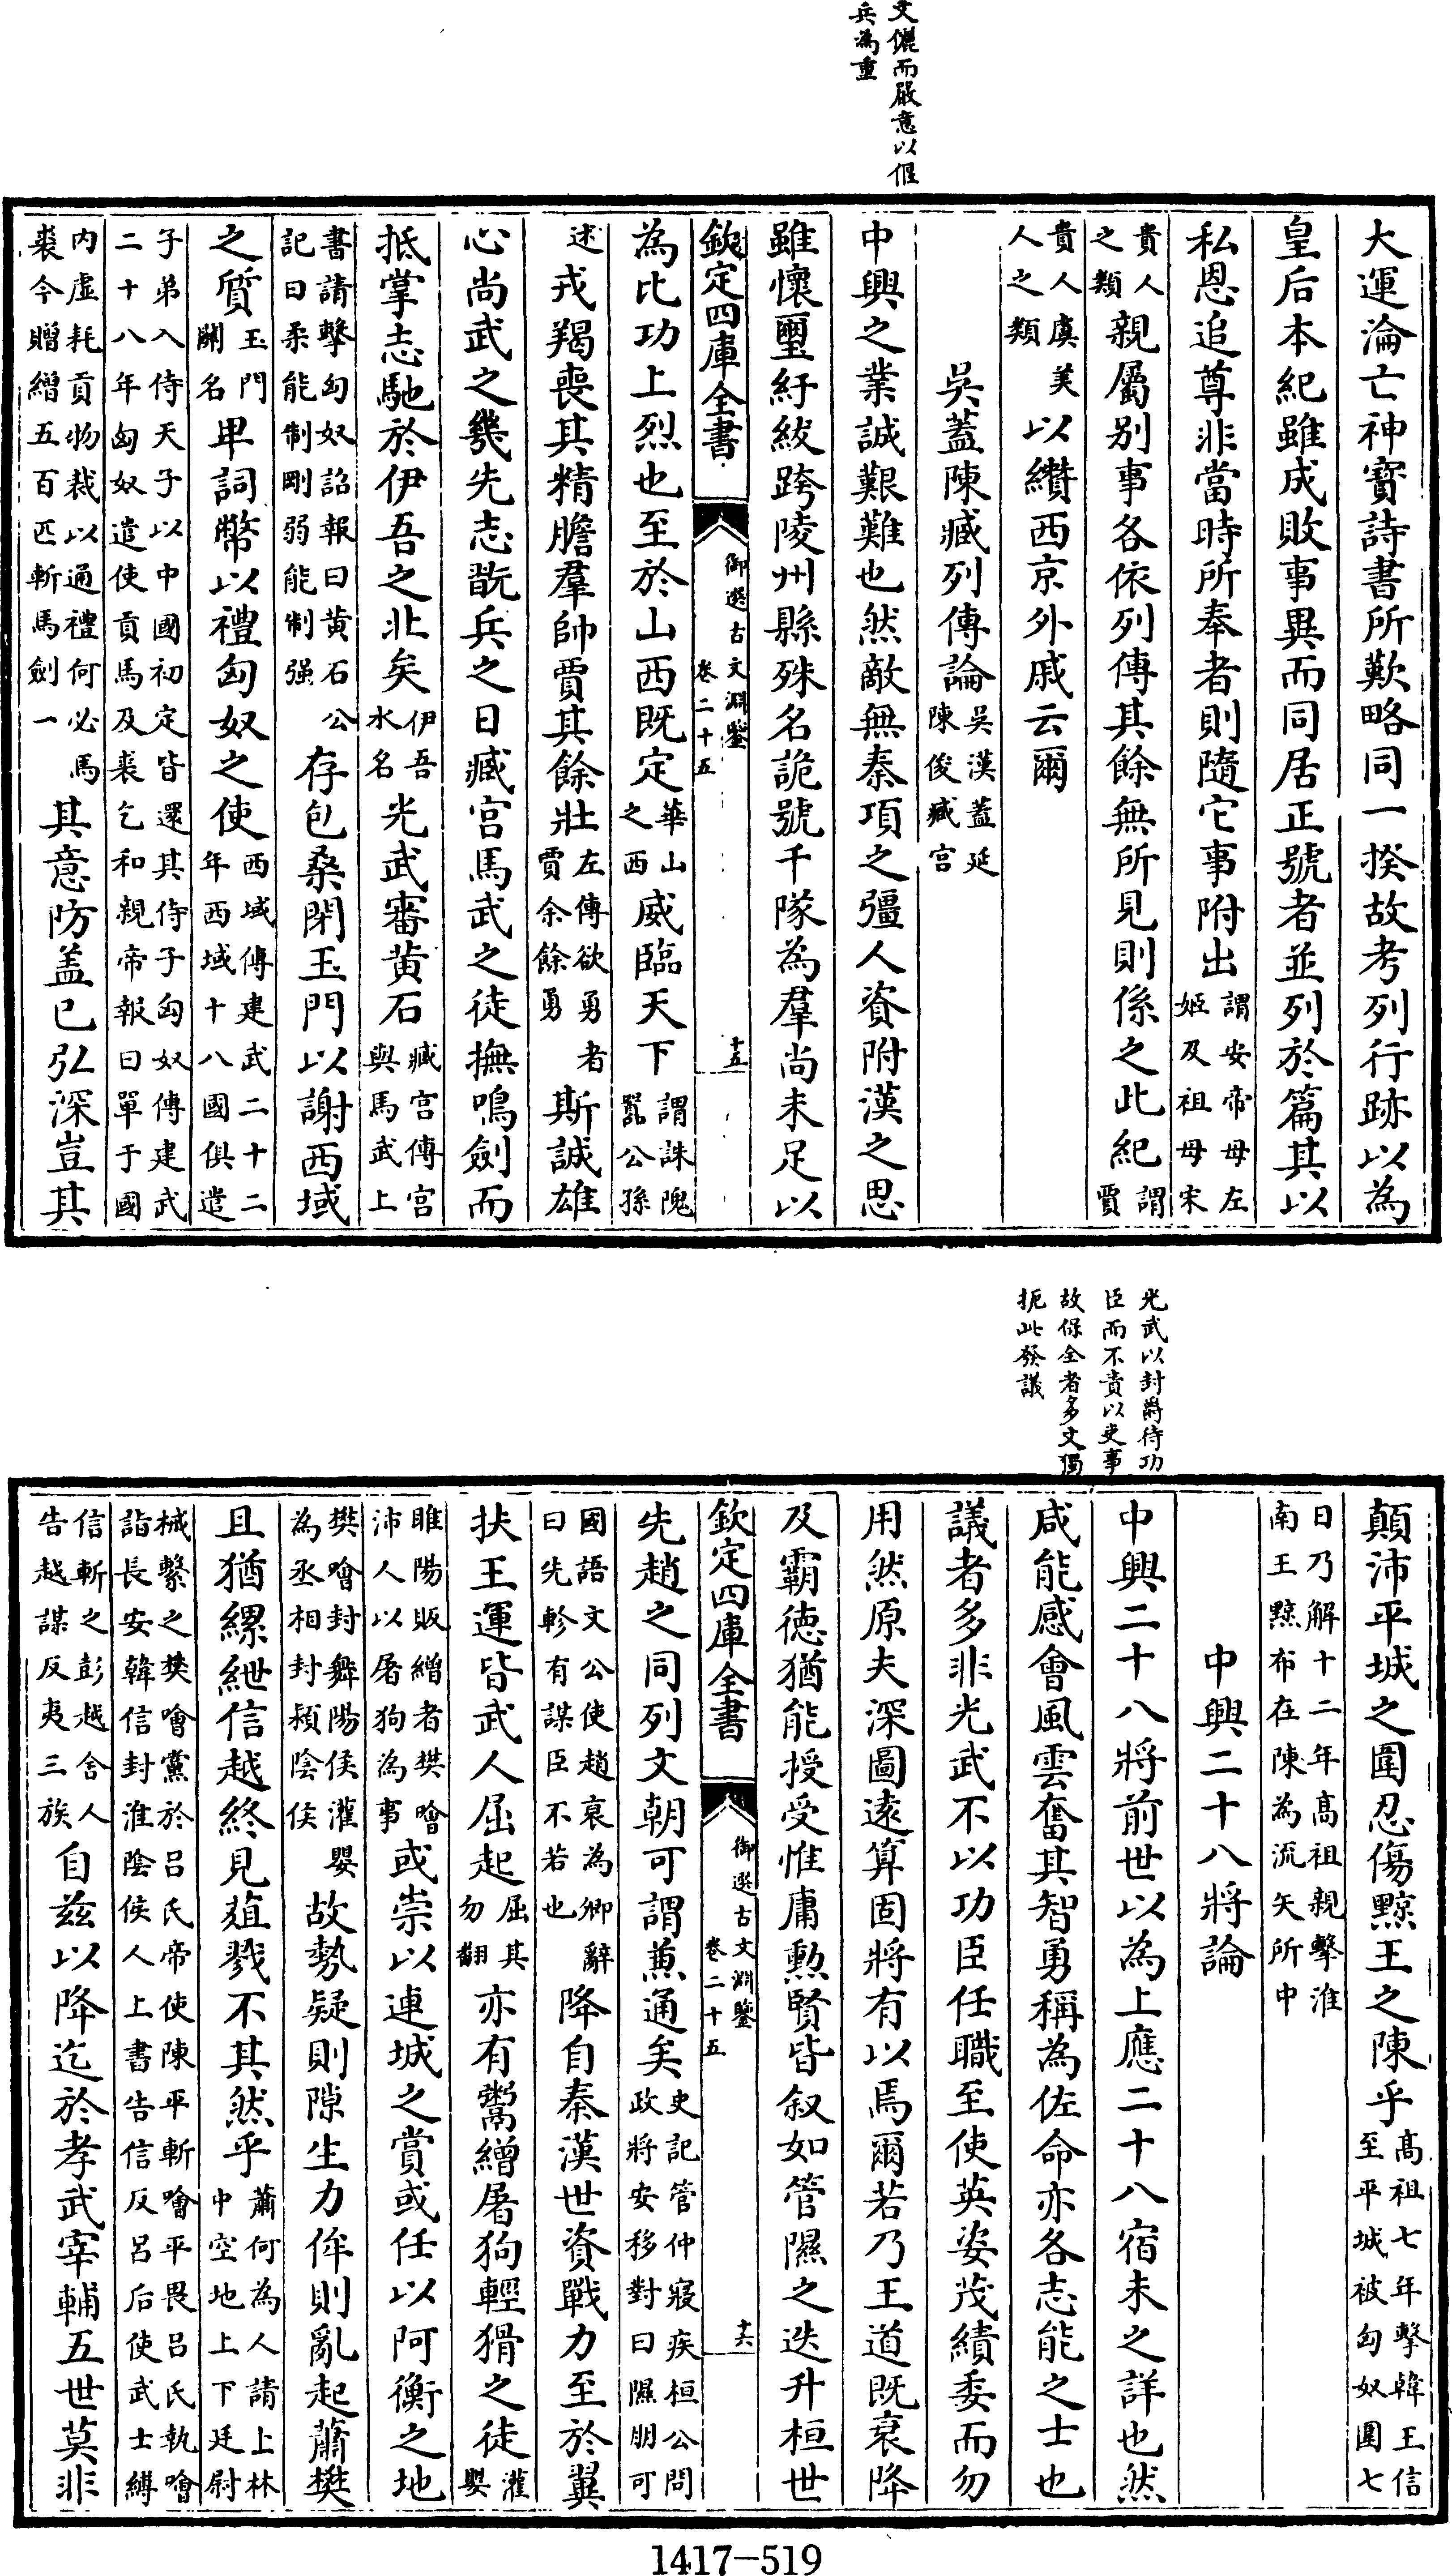 文儷而嚴意以偃
兵為重
大運淪亡神寳詩書所歎略同一揆故考列行跡以為
皇后本紀雖成敗事異而同居正號者並列於篇其以
私恩追尊非當時所奉者則隨它事附出謂安帝母左姬及祖母宋
貴人之類親屬别事各依列傳其餘無所見則係之此紀謂賈
貴人虞美人之類以纘西京外戚云爾
吳蓋陳臧列傳論吳漢蓋延陳俊臧宫
中興之業誠艱難也然敵無秦項之彊人資附漢之思
雖懷璽紆紱跨陵州縣殊名詭號千隊為羣尚未足以
欽定四庫全書
御選古文淵鑒
卷二十五
十五
為比功上烈也至於山西既定華山之西威臨天下謂誅隗囂公孫
述戎羯喪其精膽羣帥賈其餘壯左傳欲勇者賈余餘勇斯誠雄
心尚武之幾先志翫兵之日臧宫馬武之徒撫鳴劍而
抵掌志馳於伊吾之北矣伊吾水名光武審黄石臧宫傳宫與馬武上
書請擊匈奴詔報曰黄石公記曰柔能制剛弱能制强存包桑閉玉門以謝西域
之質玉門關名卑詞幣以禮匈奴之使西域傳建武二十二年西域十八國俱遣
子弟入侍天子以中國初定皆還其侍子匈奴傳建武二十八年匈奴遣使貢馬及裘乞和親帝報曰單于國
内虛耗貢物裁以通禮何必馬裘今贈繒五百匹斬馬劍一其意防盖已弘深豈其
光武以封爵待功
臣而不責以吏事
故保全者多文獨
扼此發議
顛沛平城之圍忍傷黥王之陳乎髙祖七年擊韓王信至平城被匈奴圍七
日乃解十二年髙祖親擊淮南王黥布在陳為流矢所中
中興二十八將論
中興二十八將前世以為上應二十八宿未之詳也然
咸能感會風雲奮其智勇稱為佐命亦各志能之士也
議者多非光武不以功臣任職至使英姿茂績委而勿
用然原夫深圖遠算固將有以焉爾若乃王道既衰降
及霸徳猶能授受惟庸勲賢皆叙如管隰之迭升桓世
欽定四庫全書
御選古文淵鑒
卷二十五
十六
先趙之同列文朝可謂兼通矣史記管仲寢疾桓公問政將安移對曰隰朋可
國語文公使趙衰為卿辭曰先軫有謀臣不若也降自秦漢世資戰力至於翼
扶王運皆武人屈起屈其勿翻亦有鬻繒屠狗輕猾之徒灌嬰
睢陽販繒者樊噲沛人以屠狗為事或崇以連城之賞或任以阿衡之地
樊噲封舞陽侯灌嬰為丞相封潁陰侯故勢疑則隙生力侔則亂起蕭樊
且猶縲紲信越終見葅戮不其然乎蕭何為人請上林中空地上下廷尉
械繫之樊噲黨於呂氏帝使陳平斬噲平畏呂氏執噲詣長安韓信封淮陰侯人上書告信反呂后使武士縛
信斬之彭越舍人告越謀反夷三族自兹以降迄於孝武宰輔五世莫非
1417-519